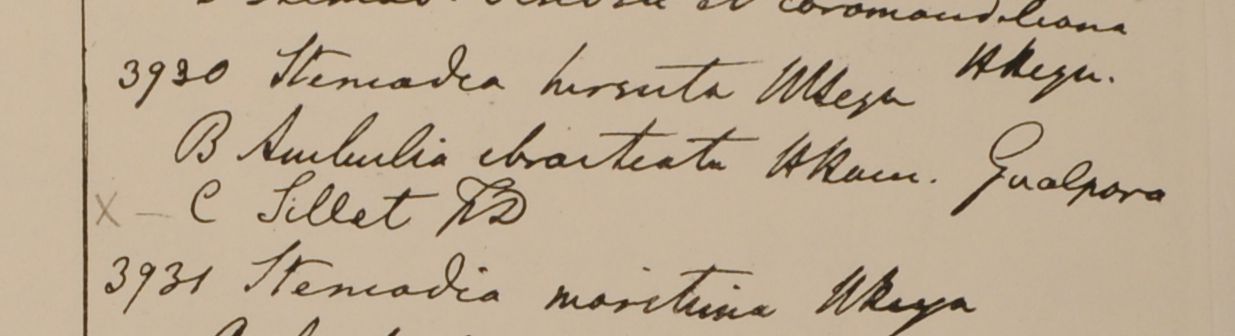 et coromandeliana
3930 Stemodia hirsuta HHeyn.
B Ambulia ebracteata HHam. Gualpara
X - C Sillet FD
3931 Stemodia maritima